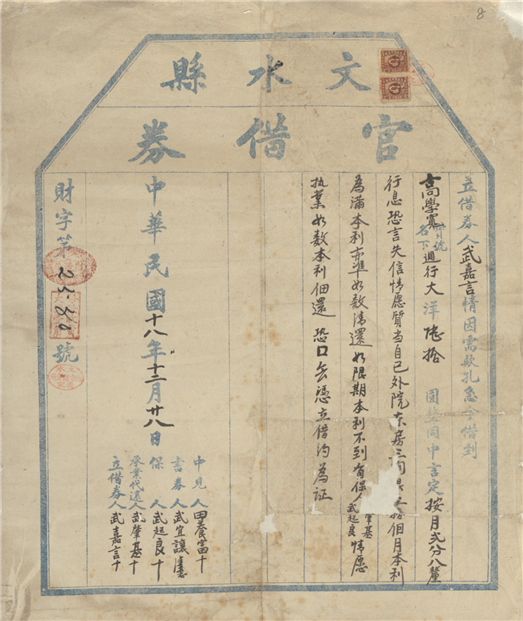 8
文水縣
官借券
立借券人武嘉言情因需款孔急今借到
高學寬寶號名下通行大洋陸拾圓整同中言定按月弍分八釐
行息恐言失信情愿質当自己外院東房三間個月本利
為滿本利亦準如数清還如限期本利不到有保人武肇基武起良情愿
执業如数本利佃還恐口無憑立借約為証
中見人田養富十
書券人武宜讓
保人武起良十
承業代還人武肇基十
立借券人武嘉言十
中華民國十八年十二月廿八日
財字第號